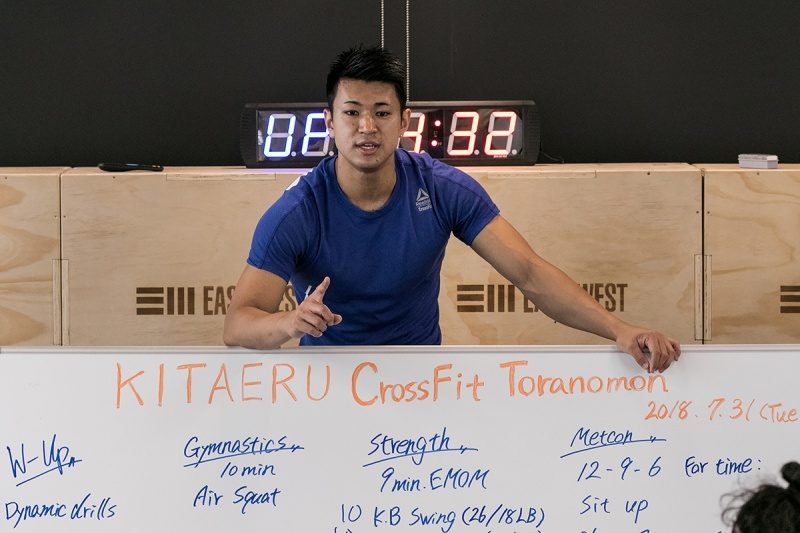 Reebok
CrossFit
EAST WEST
KITAERU CrossFit Toranomon
2018. 7. 31 (Tue
W-Up
Dynamic drills
Gymnastics
10 min
Air Squat
Strength
9 min. EMOM
10 K.B Swing (26/18LB)
Metcon
12-9-6 For time:
Sit up